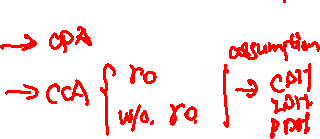 → CPA
→ CCA { ro
w/o. ro
assumption
→ CDH
DDH